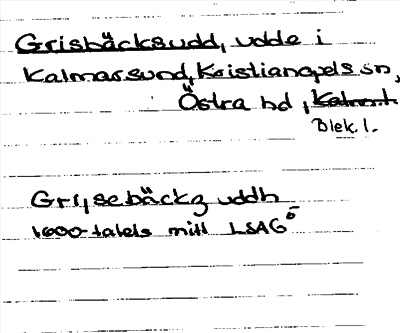 Grisbäcksudd, udde i
Kalmarsund, Kristianopels sn,
Östra hd,
Blek. l.
Grijsebäckz uddh
1600-talets mitt LSA G ö